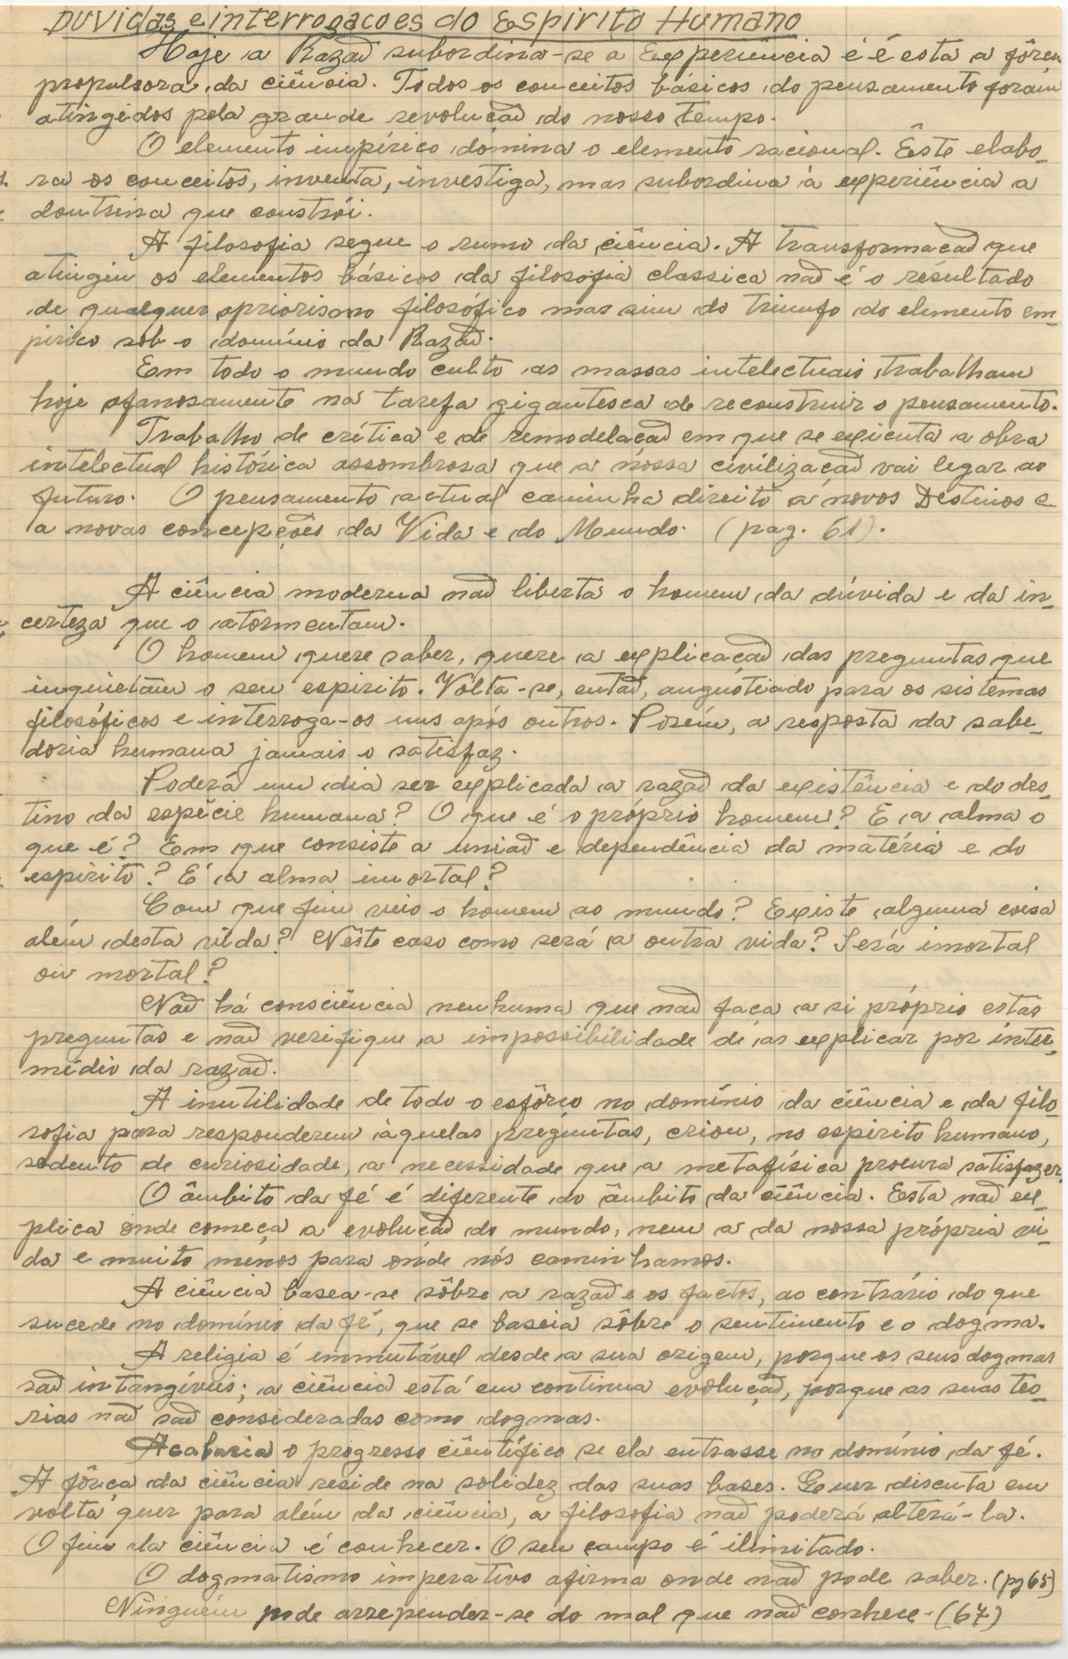 Duvidas e interrogacoes do Espirito Humano
Hoje a Razaõ subordina-se a Experiência e é esta a fôrça
propulsora da ciência. Todos os conceitos básicos do pensamento foram
atingidos pela grande revoluçaõ do nosso tempo.
O elemento impírico domina o elemento racional. Êste elabo-
ra os conceitos, inventa, investiga, mas subordina à experiência a
doutrina que constrói.
A filosofia segue o rumo da ciência. A transformacaõ que
atingiu os elementos básicos da filosofia classica naõ é o resultado
de qualquer apriorismo filosófico mas sim do triunfo do elemento em-
pírico sob o domínio da Razaõ.
Em todo o mundo culto as massas intelectuais trabalham
hoje afanosamente na tarefa gigantesca de reconstruir o pensamento.
Trabalho de crítica e de remodelaçaõ em que se executa a obra
intelectual histórica assombrosa que a nossa civilizaçaõ vai legar ao
futuro. O pensamento actual caminha direito a novos Destinos e
a novas concepções da Vida e do Mundo. (pag. 61).
A ciência moderna naõ liberta o homem da dúvida e da in-
certeza que o atormentam.
O homem quere saber, quere a explicacaõ das preguntas que
inquietam o seu espirito. Volta-se, entaõ, angustiado para os sistemas
filosóficos e interroga-os uns após outros. Porém, a resposta da sabe-
doria humana jamais o satisfaz.
Poderá um dia ser explicada a razaõ da existência e do des-
tino da espécie humana? O que é o próprio homem? E a alma o
que é? Em que consiste a uniaõ e dependência da matéria e do
espirito? É a alma imortal?
Com que fim veio o homem ao mundo? Existe alguma coisa
além desta vida? Nêste caso como será a outra vida? Será imortal
ou mortal?
Naõ há consciência nenhuma que naõ faça a si próprio estas
preguntas e naõ verifique a impossibilidade de as explicar por inter-
médio da razaõ.
A inutilidade de todo o esfôrço no domínio da ciência e da filo-
sofia para responderem àquelas preguntas, criou, no espirito humano,
sedento de curiosidade, a necessidade que a metafísica procura satisfazer.
O âmbito da fé é diferente do âmbito da ciência. Esta naõ ex-
plica onde começa a evoluçaõ do mundo, nem a da nossa própria vi-
da e muito menos para onde nós caminhamos.
A ciência basea-se sôbre a razaõ e os factos, ao contrário do que
sucede no domínio da fé, que se baseia sôbre o sentimento e o dogma.
A religia é immutável desde a sua origem, porque os seus dogmas
saõ intangíveis; a ciência está em contínua evoluçaõ, porque as suas teo-
rias naõ saõ consideradas como dogmas.
Acabaria o progresso ciêntífico se ela entrasse no domínio da fé.
A fôrça da ciência reside na solidez das suas bases. Quer discuta em
volta quer para além da ciência, a filosofia naõ poderá alterá-la.
O fim da ciência é conhecer. O seu campo é ilimitado.
O dogmatismo imperativo afirma onde naõ pode saber. (pg 65)
Ninguém pode arrepender-se do mal que naõ conhece - (67)